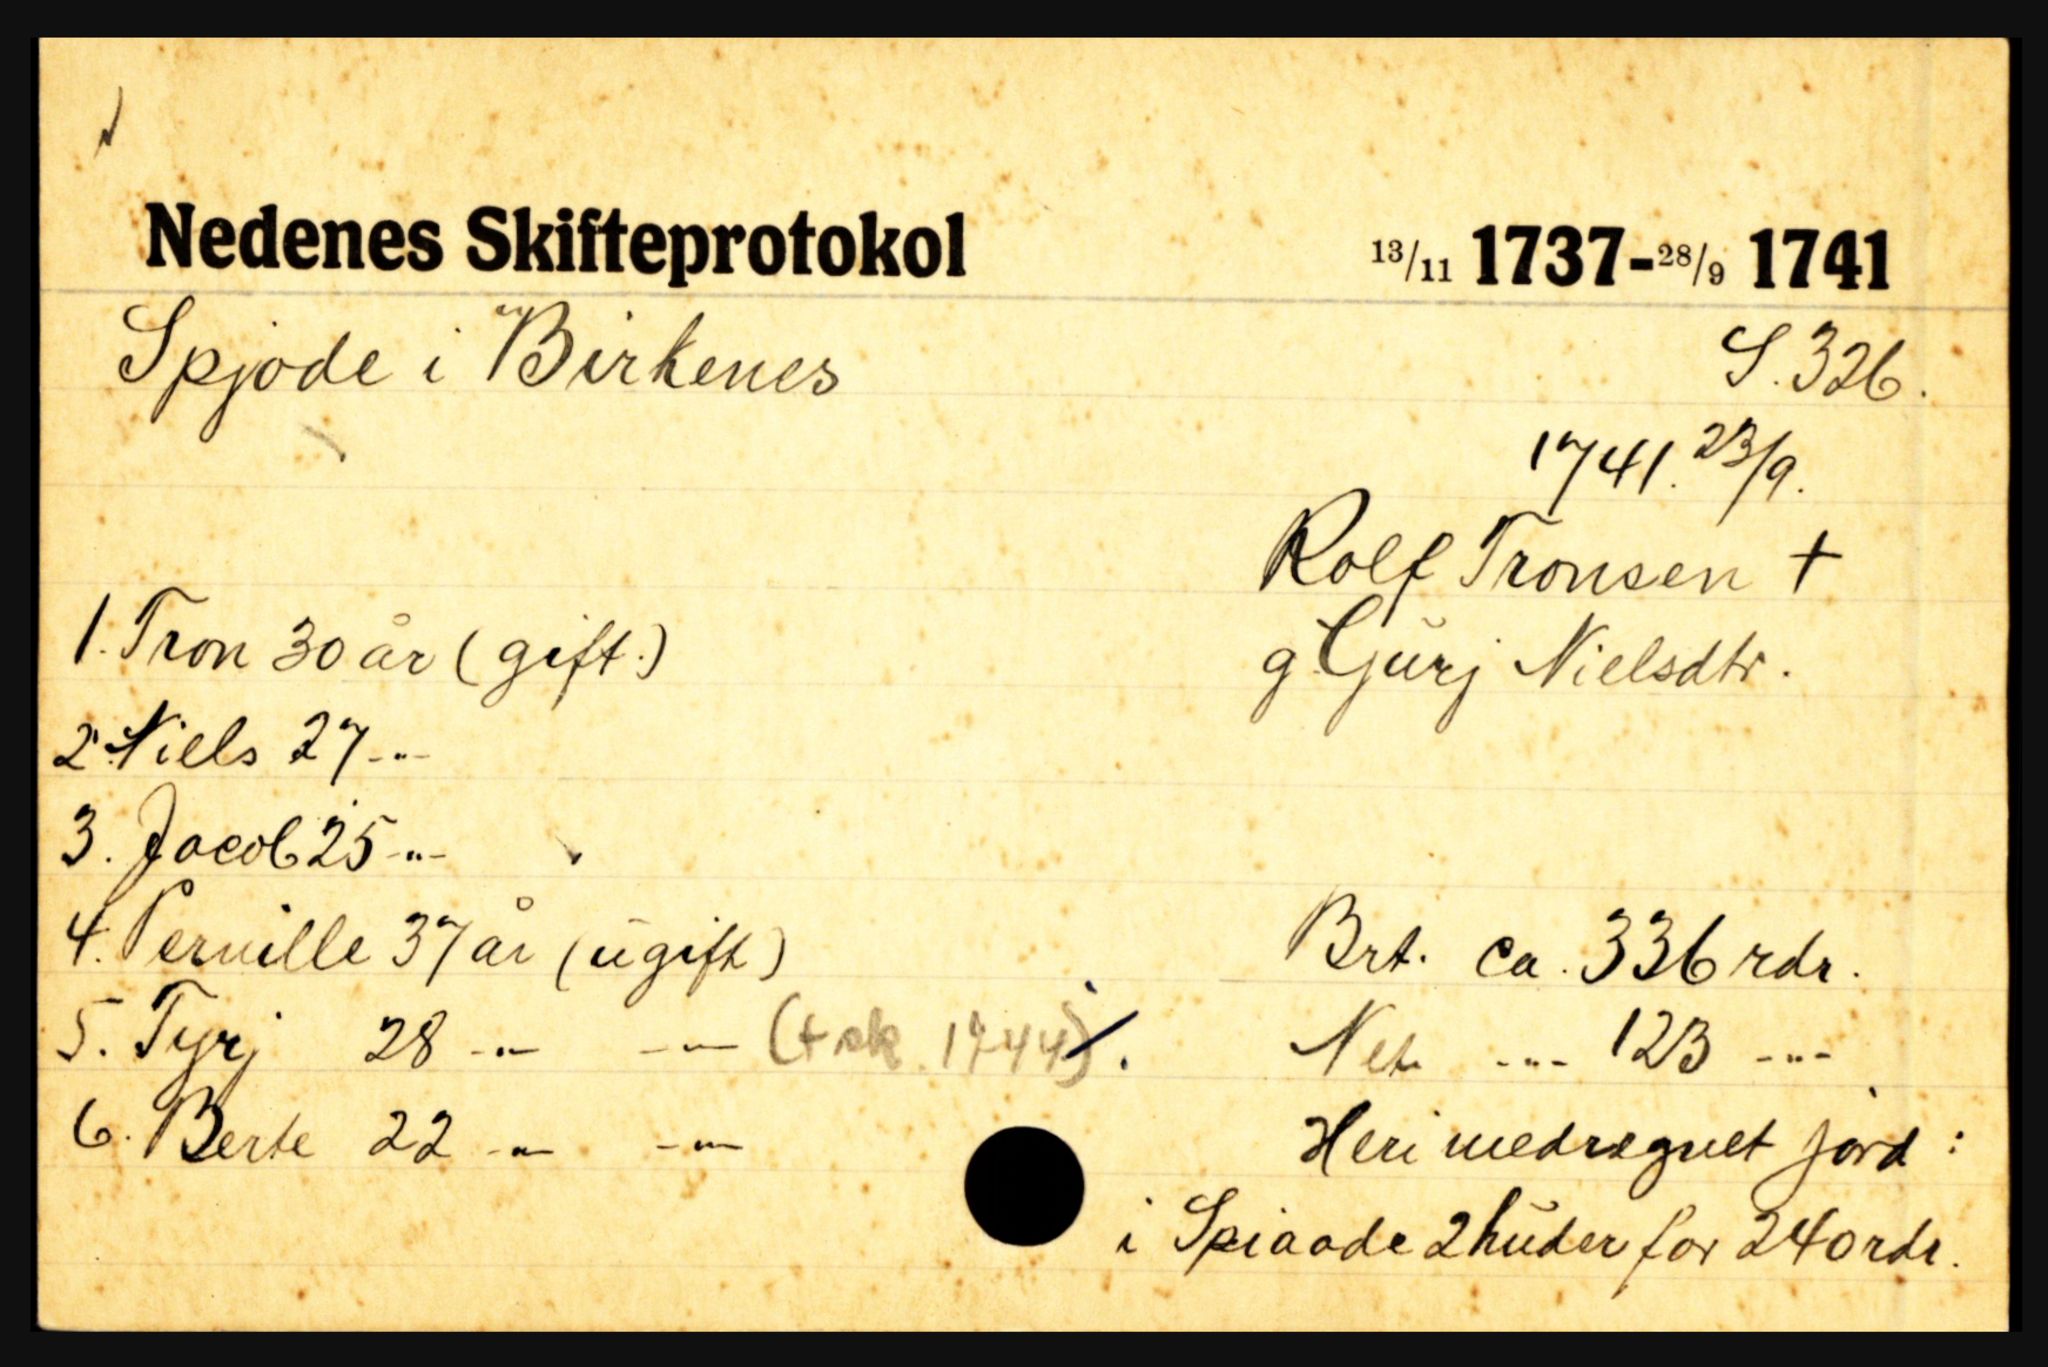 Nedenes Skifteprotokol 13/11 1737-28/9 1741
Spjode i Birkenes S. 326.
1741. 23/9.
Rolf Tronsen +
g Gurj Nielsdtr.
1. Tron 30 år (gift.)
2. Niels 27 -"-
3. Jacob 25 -"-
4. Pernille 37 år (ugift)
5. Tyrj 28 -"- -"- (+ sk. 1744).
6. Berte 22 -"- -"-
Brt. ca. 336 rdr.
Net. -"- 123 -"-
Heri medregnet jord:
i Spiaade 2 huder for 240 rdr.